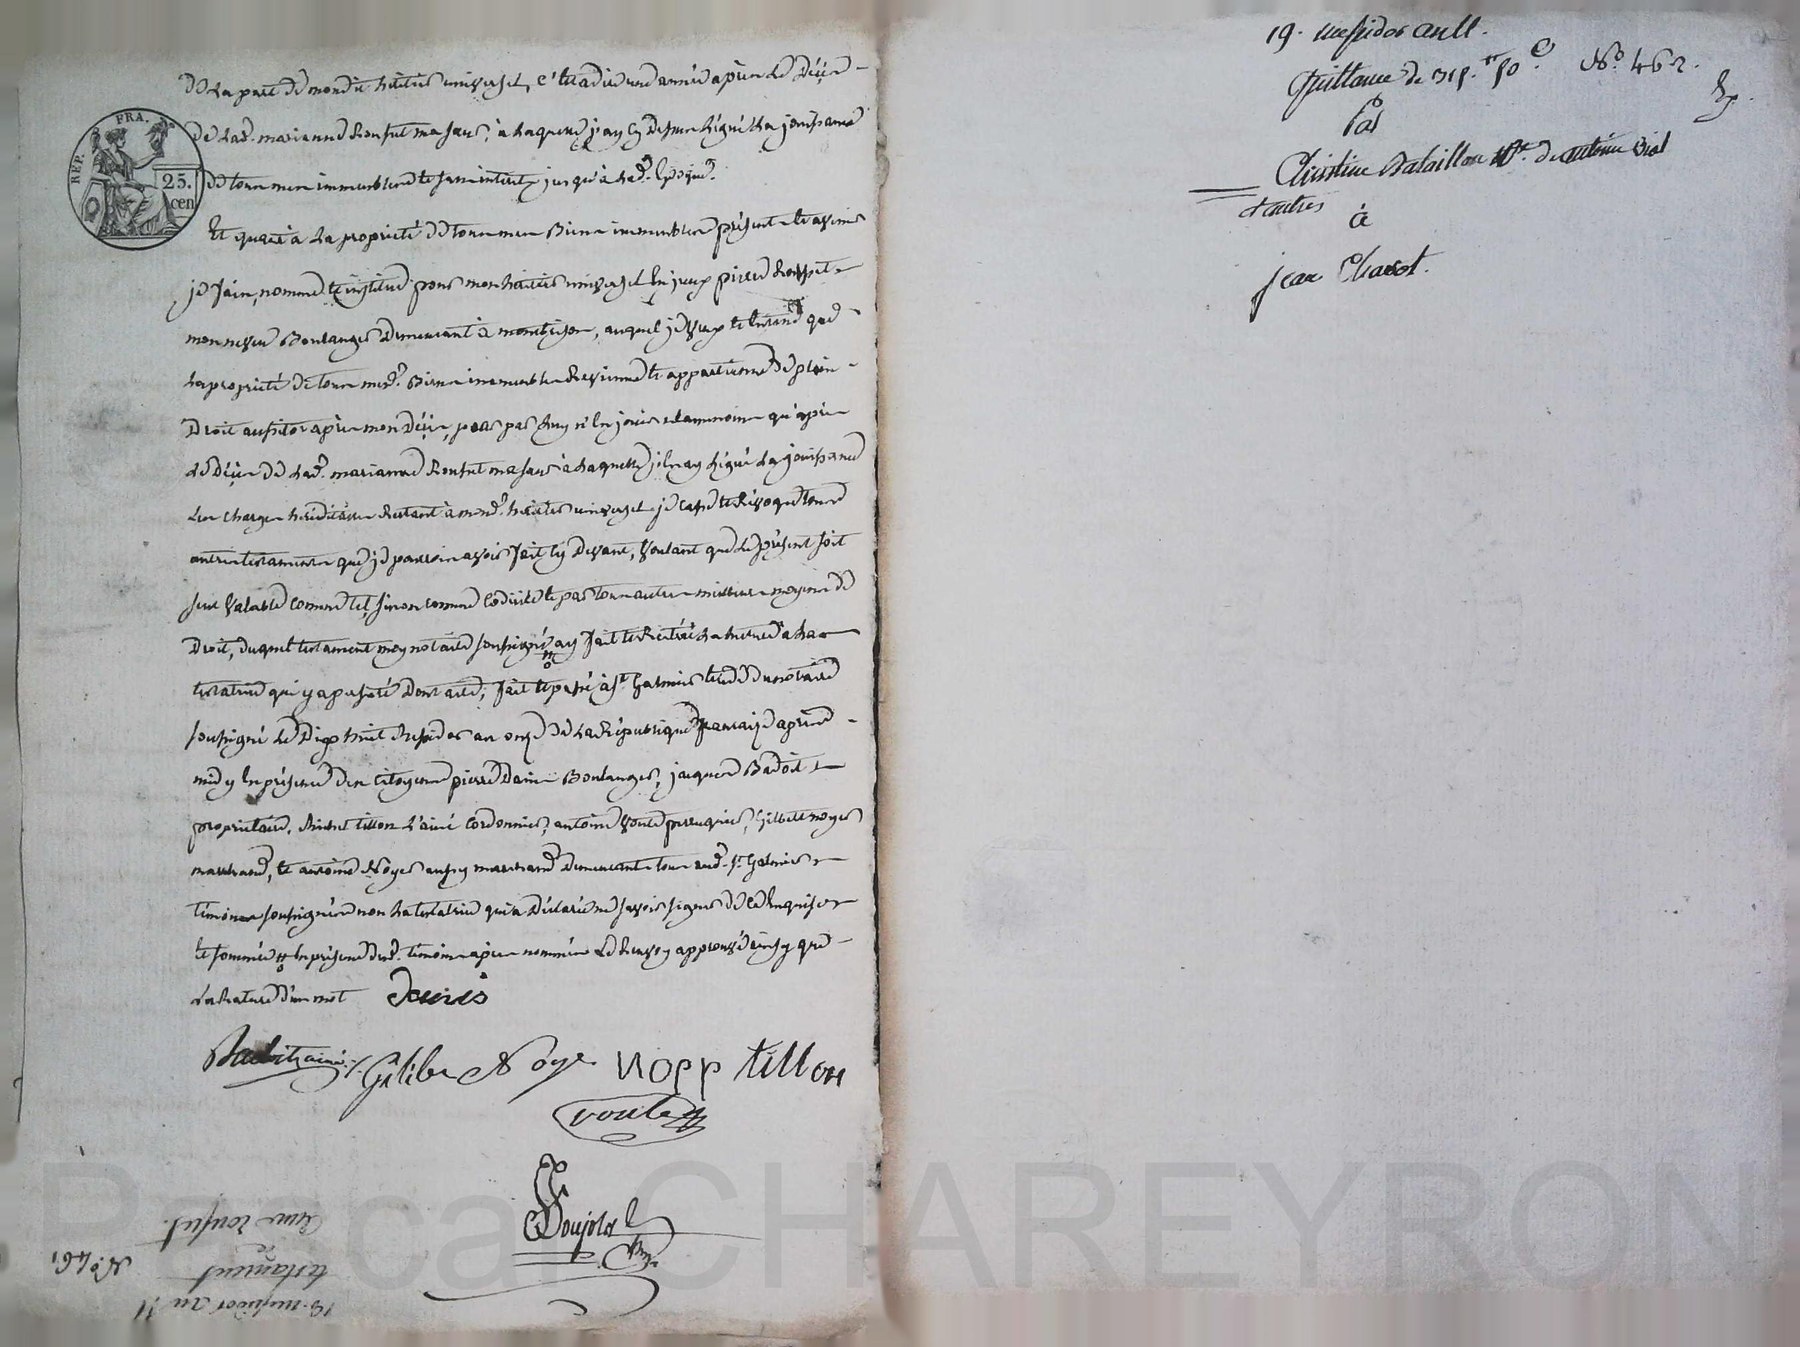 de la part de mondit héritier universel, c'est a dire une année après le décès
de lad. marianne Ronfut ma sœur, à laquelle j'ay cy dessus légué la jouissance
de tous mes immeubles et sans interets jusqu'à lad. Epoque.
Et quant à la propriété de tous mes Biens immeubles présents et avenir
je fais, nomme et institue pour mon héritier universel
mon neveu Boulanger demeurant à montbrison, auquel je veux et entend que
la propriété de tous mesd. Biens immeubles Revienne et appartienne de plein
Droit aussitot après mon décès, pour par luy n'En jouir néanmoins qu'après
Le Décès de lad. marianne Ronfut ma sœur à laquelle j'En ay légué la jouissance
Les charges héréditaires Restant à mond. héritier universel je casse et Révoque tous
autres testaments que je pourrois avoir fait cy devant, voulant que le présent soit
seul valable comme tel, sinon comme codicile et par tous autres meilleurs moyens de
Droit, duquel testament moy notaire soussigné ay fait et Réitéré la lecture a la
testatrice qui y a persisté Dont acte; fait et passé à St. Galmier étude du notaire
soussigné le Dix huit Messidor an onze de la République française après
midy En présence des citoyens pierre Davier Boulanger, jacques Badoit
propriétaire, Michel tillon l'ainé Cordonnier, antoine Voute perruquier, Gilbert noyer
marchand, et antoine Noyer aussy marchand demeurants tous aud. St. Galmier
témoins soussignés non la testatrice qui a Déclaré ne savoir signer de ce Enquise
et sommée En présence desd. témoins après nommés Le Renvoy approuvé ainsy que
La Rature d'un mot Davier
Badoit ainé Giliber Noye nopp tillon
voute
Doujolx
19. messidor an 11
testament
de
Ronfut
No. 461
25.
cen
REP. FRA.
19. messidor an 11.
Quittance de 315.tt 50 c. No. 462.
Par
Christine Bataillon Ve. de antoine Vial
& autres
à
jean Chavot.
Pascal CHAREYRON